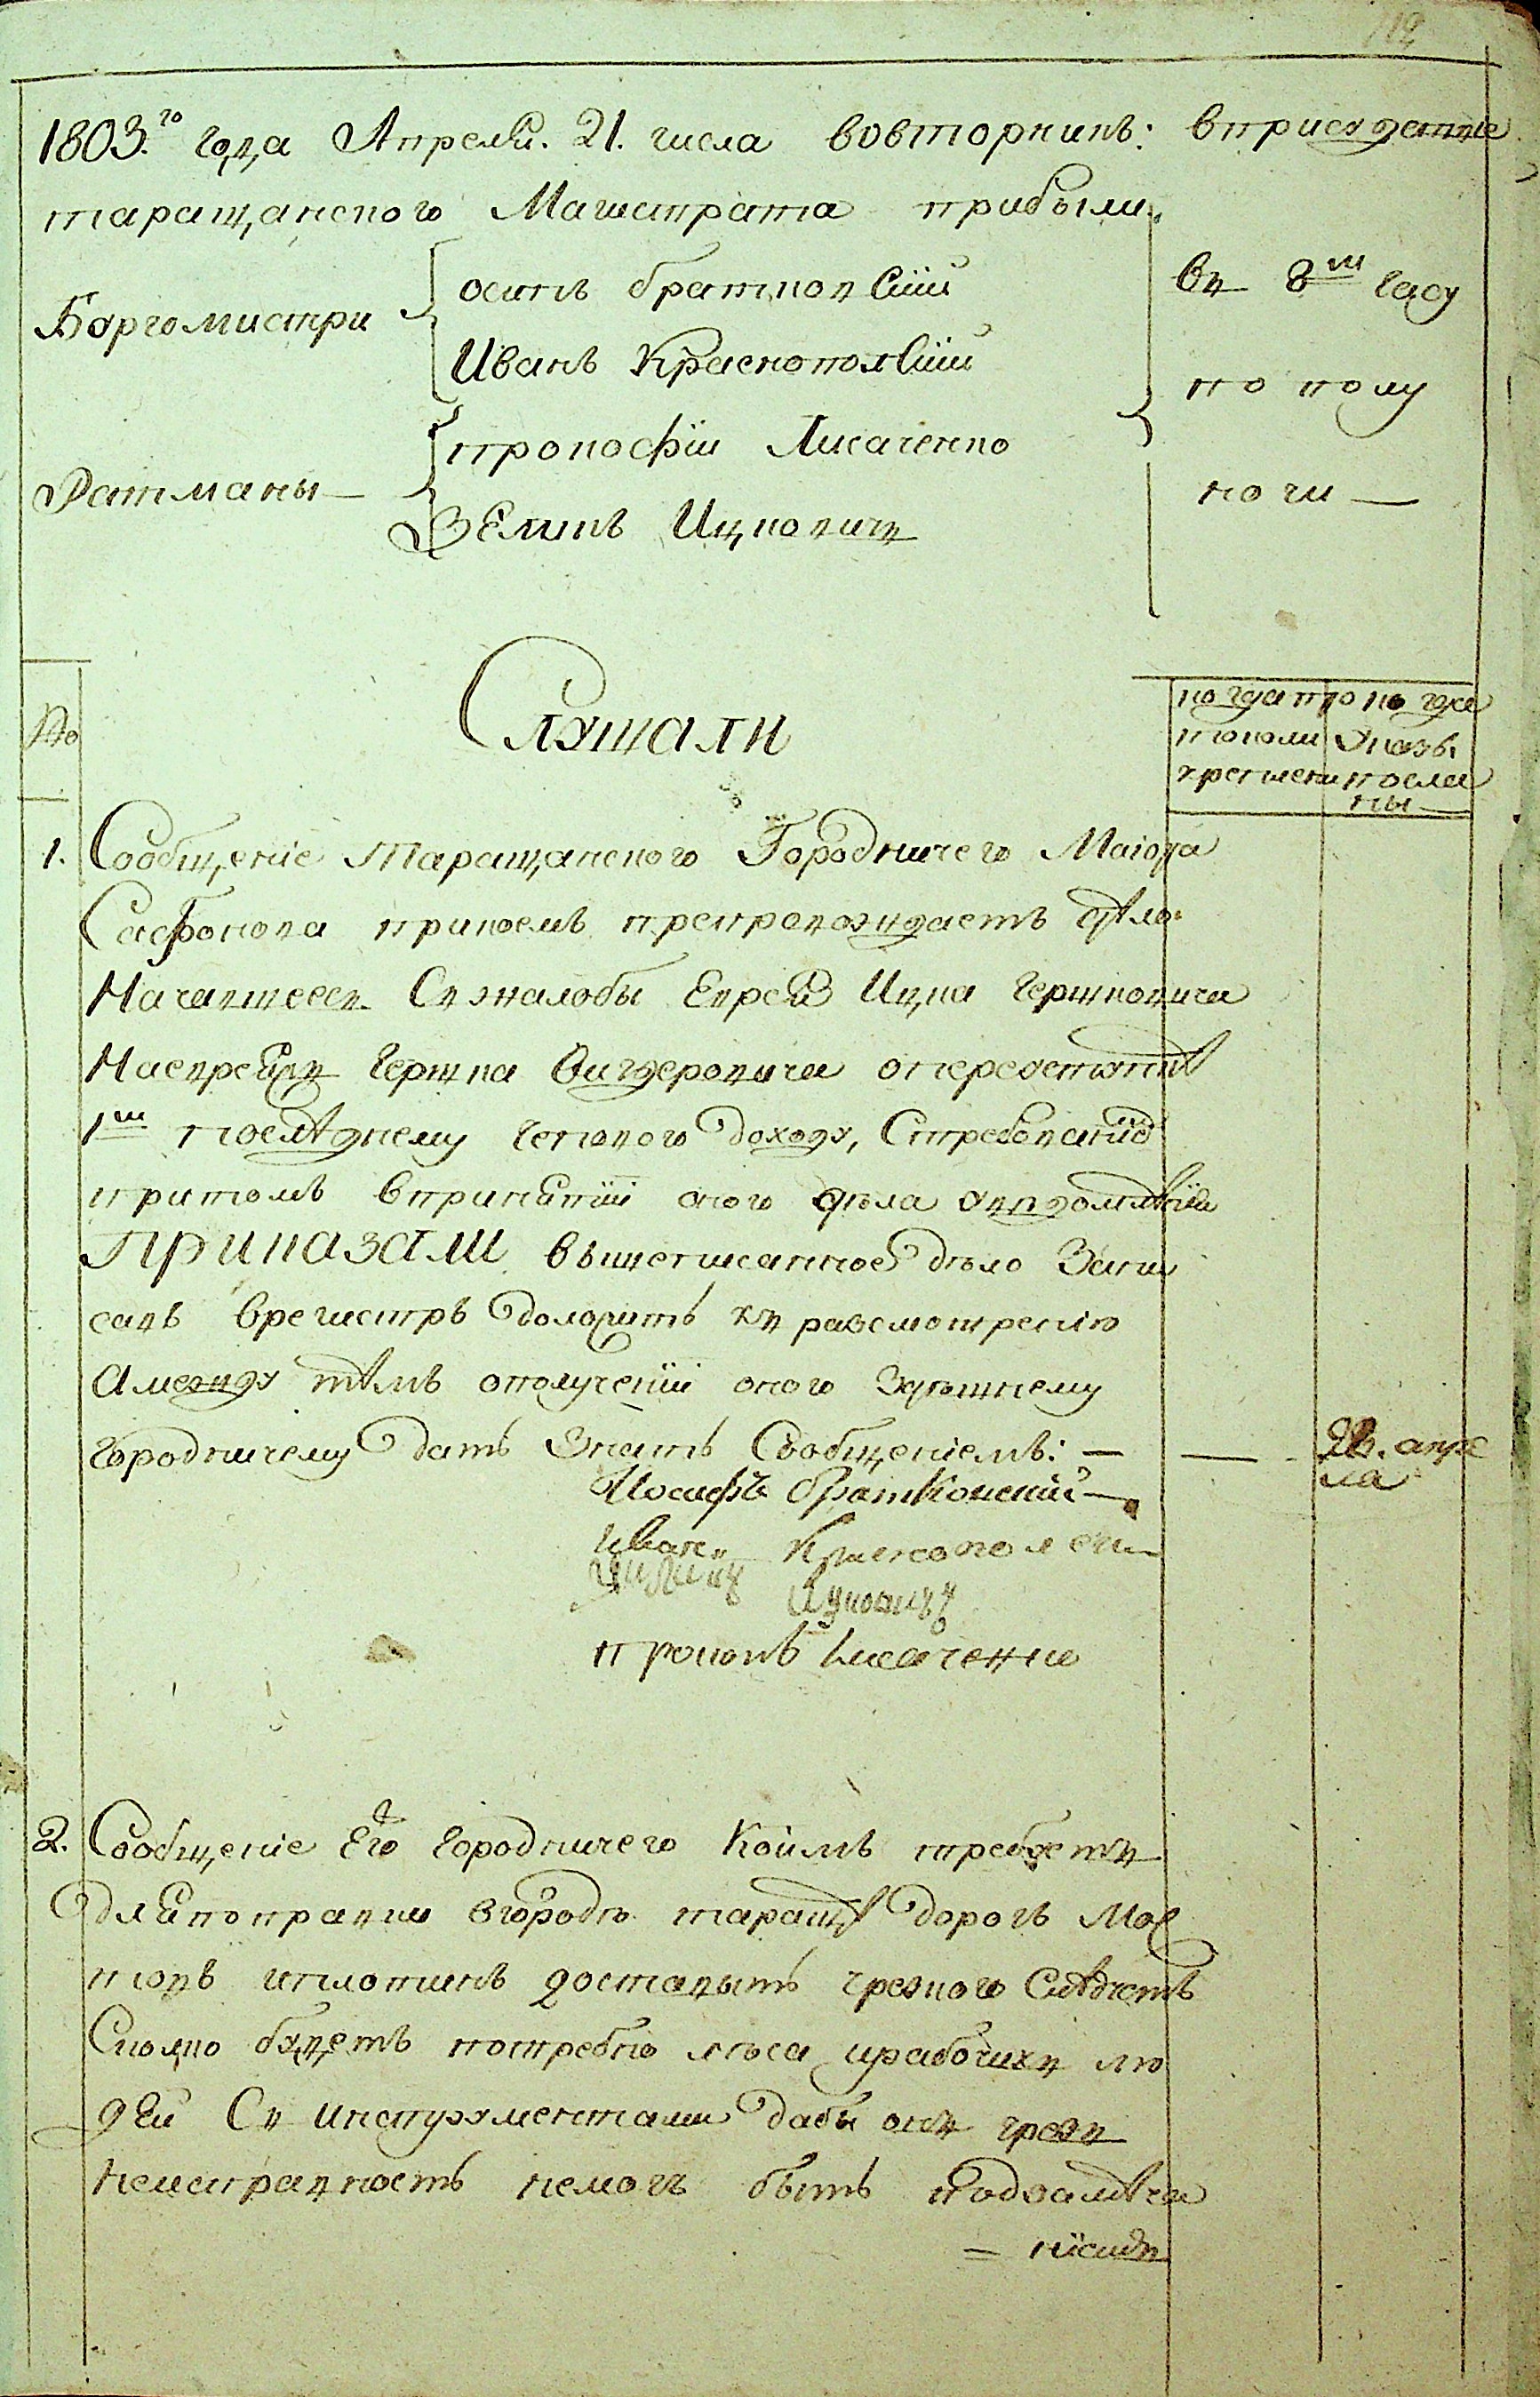 112
1803.го года Апреля. 21. числа вовторникъ: вприсудствие
таращанского Магистрата прибыли
Бургомистри
осипъ братковский
Иванъ Краснополский
Ратманы
прокофий Лисаченко
Зеликъ Ицковичъ
въ 8м часу
по полу
ночи —
Слушали
№
когда про
токоли
укреплени
когда
Указы
посла
ны
1. Сообщение таращанского Городничего Маиора
Сафонова прикоемъ препровождаетъ дѣло
Начавшееся Съжалобы Еврея Ицка Гершковича
Наеврейнъ Гершка Вигдеровича онереестатѣ
1м последнему чепового доходу, Стребованиѣ
притомъ впринятии оного дѣла уведомлѣния
приказали вышеписанное дѣло Запи
савъ врегистръ доложить къ разсмотрению
Амежду тѣмъ ополучении оного Здешнему
городничему дать Знать Сообщениемъ: —
22. апре
ля
Иосифъ братковский
Иванъ Краснополски
Ицковичъ
прокопъ Лисаченко
2. Сообщение Его городничего Коимъ требуетъ
для поправки вгороде таращѣ дорогъ Мос
товъ иплотинъ доставить чрезкого Слѣдуетъ
Сколко будетъ потребно лѣса ирабочихъ лю
дей Съ инструментами дабы онъ чрезъ
Неисправность немогъ быть подзамѣча
— ниемъ